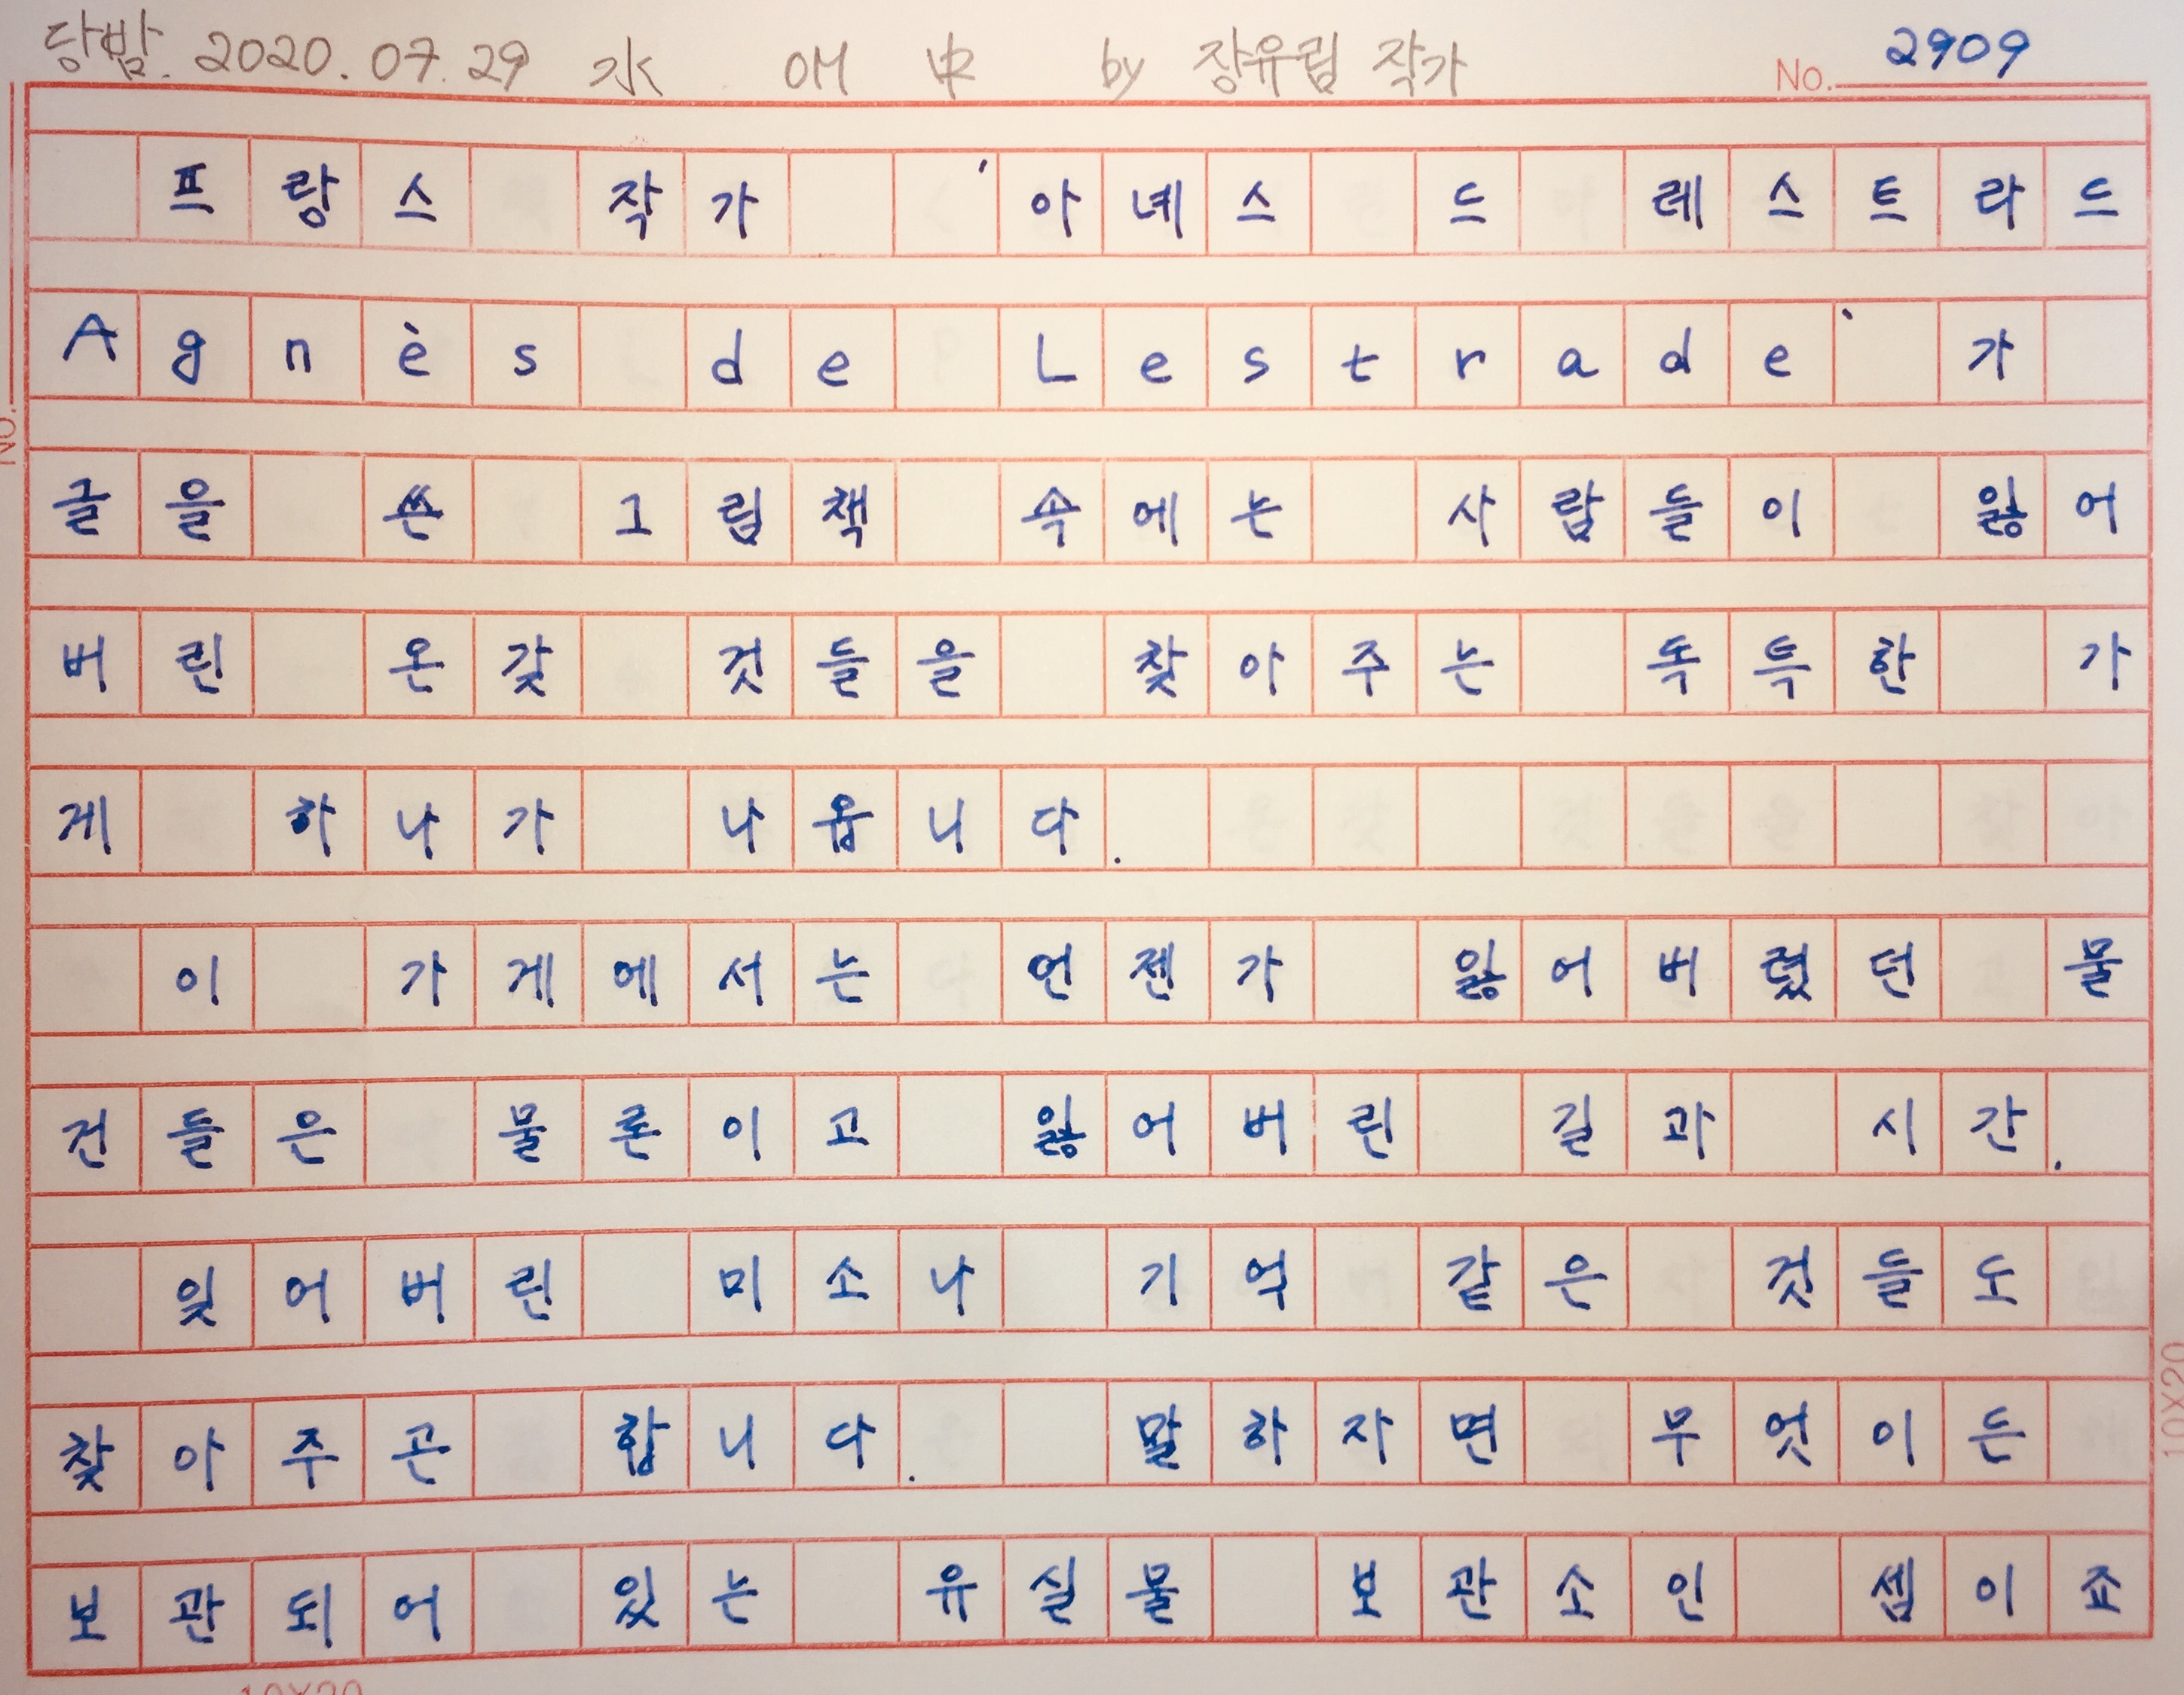 당밤. 2020. 07. 29 水 애 申 by 장유림 작가 No. 2909
프랑스 작가 '아녜스 드 레스트라드
Agnès de Lestrade' 가
글을 쓴 그림책 속에는 사람들이 잃어
버린 온갖 것들을 찾아주는 독특한 가
게 하나가 나옵니다.
이 가게에서는 언젠가 잃어버렸던 물
건들은 물론이고 잃어버린 길과 시간.
잊어버린 미소나 기억 같은 것들도
찾아주곤 합니다. 말하자면 무엇이든
보관되어 있는 유실물 보관소인 셈이죠
10X20
10X20
No.